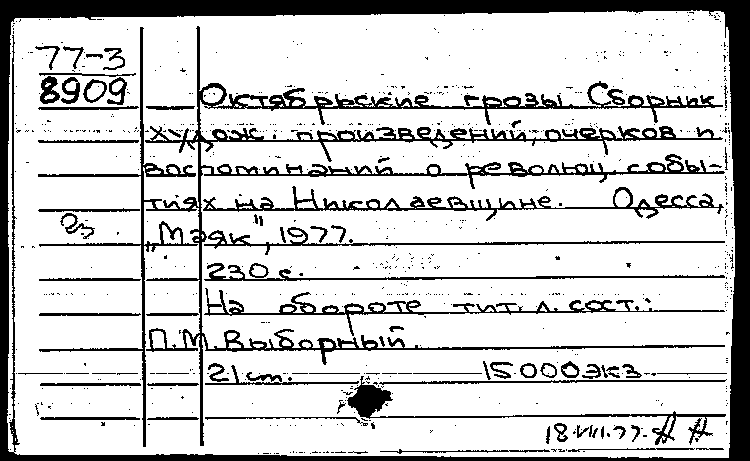 77-3
8909
Октябрьские грозы. Сборник
худож. произведений, очерков и
воспоминаний о революц. собы-
тиях на Николаевщине. Одесса,
„Маяк", 1977.
230 с.
На обороте тит. л. сост.:
П.М. Выборный.
21 см. 15000 экз.
18.VIII.77.